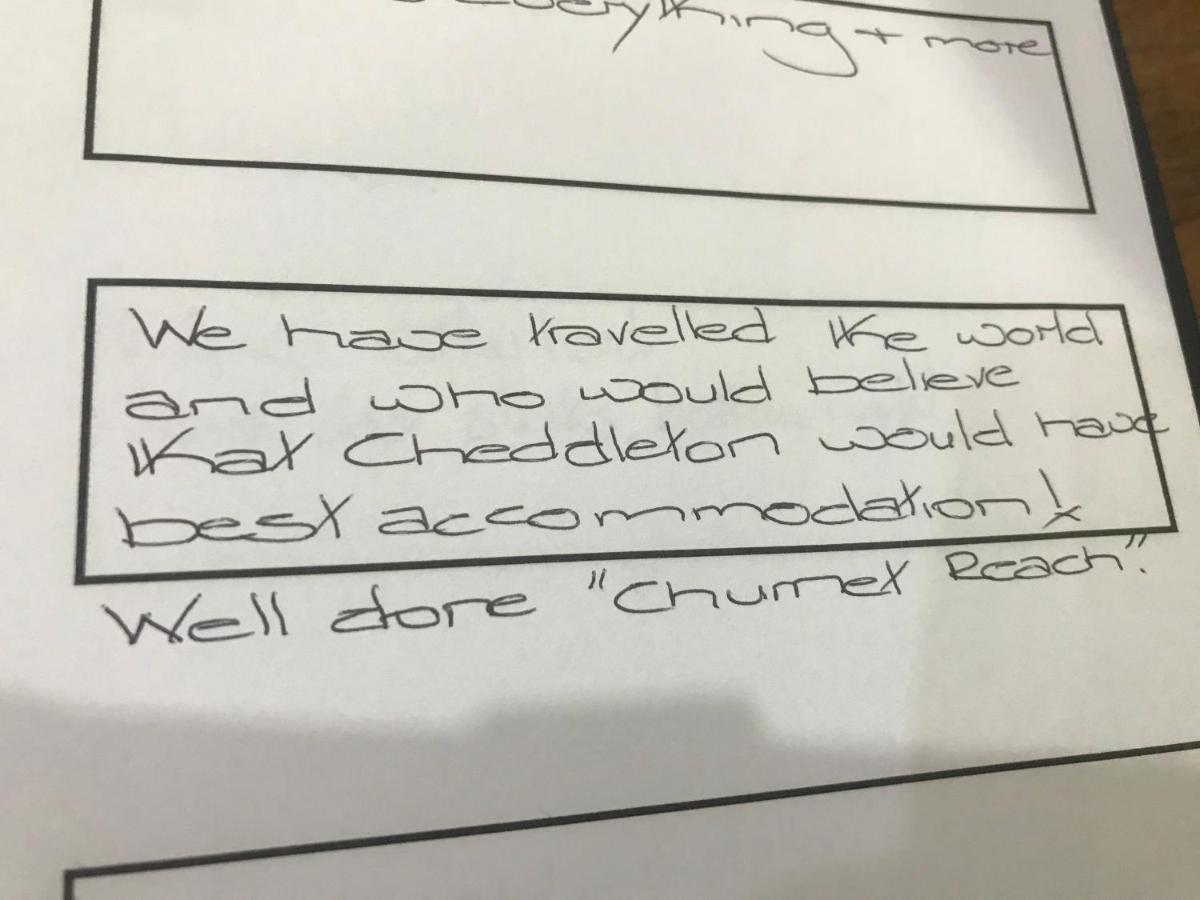 everything + more
We have travelled the world
and who would believe
that Cheddleton would have
best accommodation!
Well done "Churnet Reach".